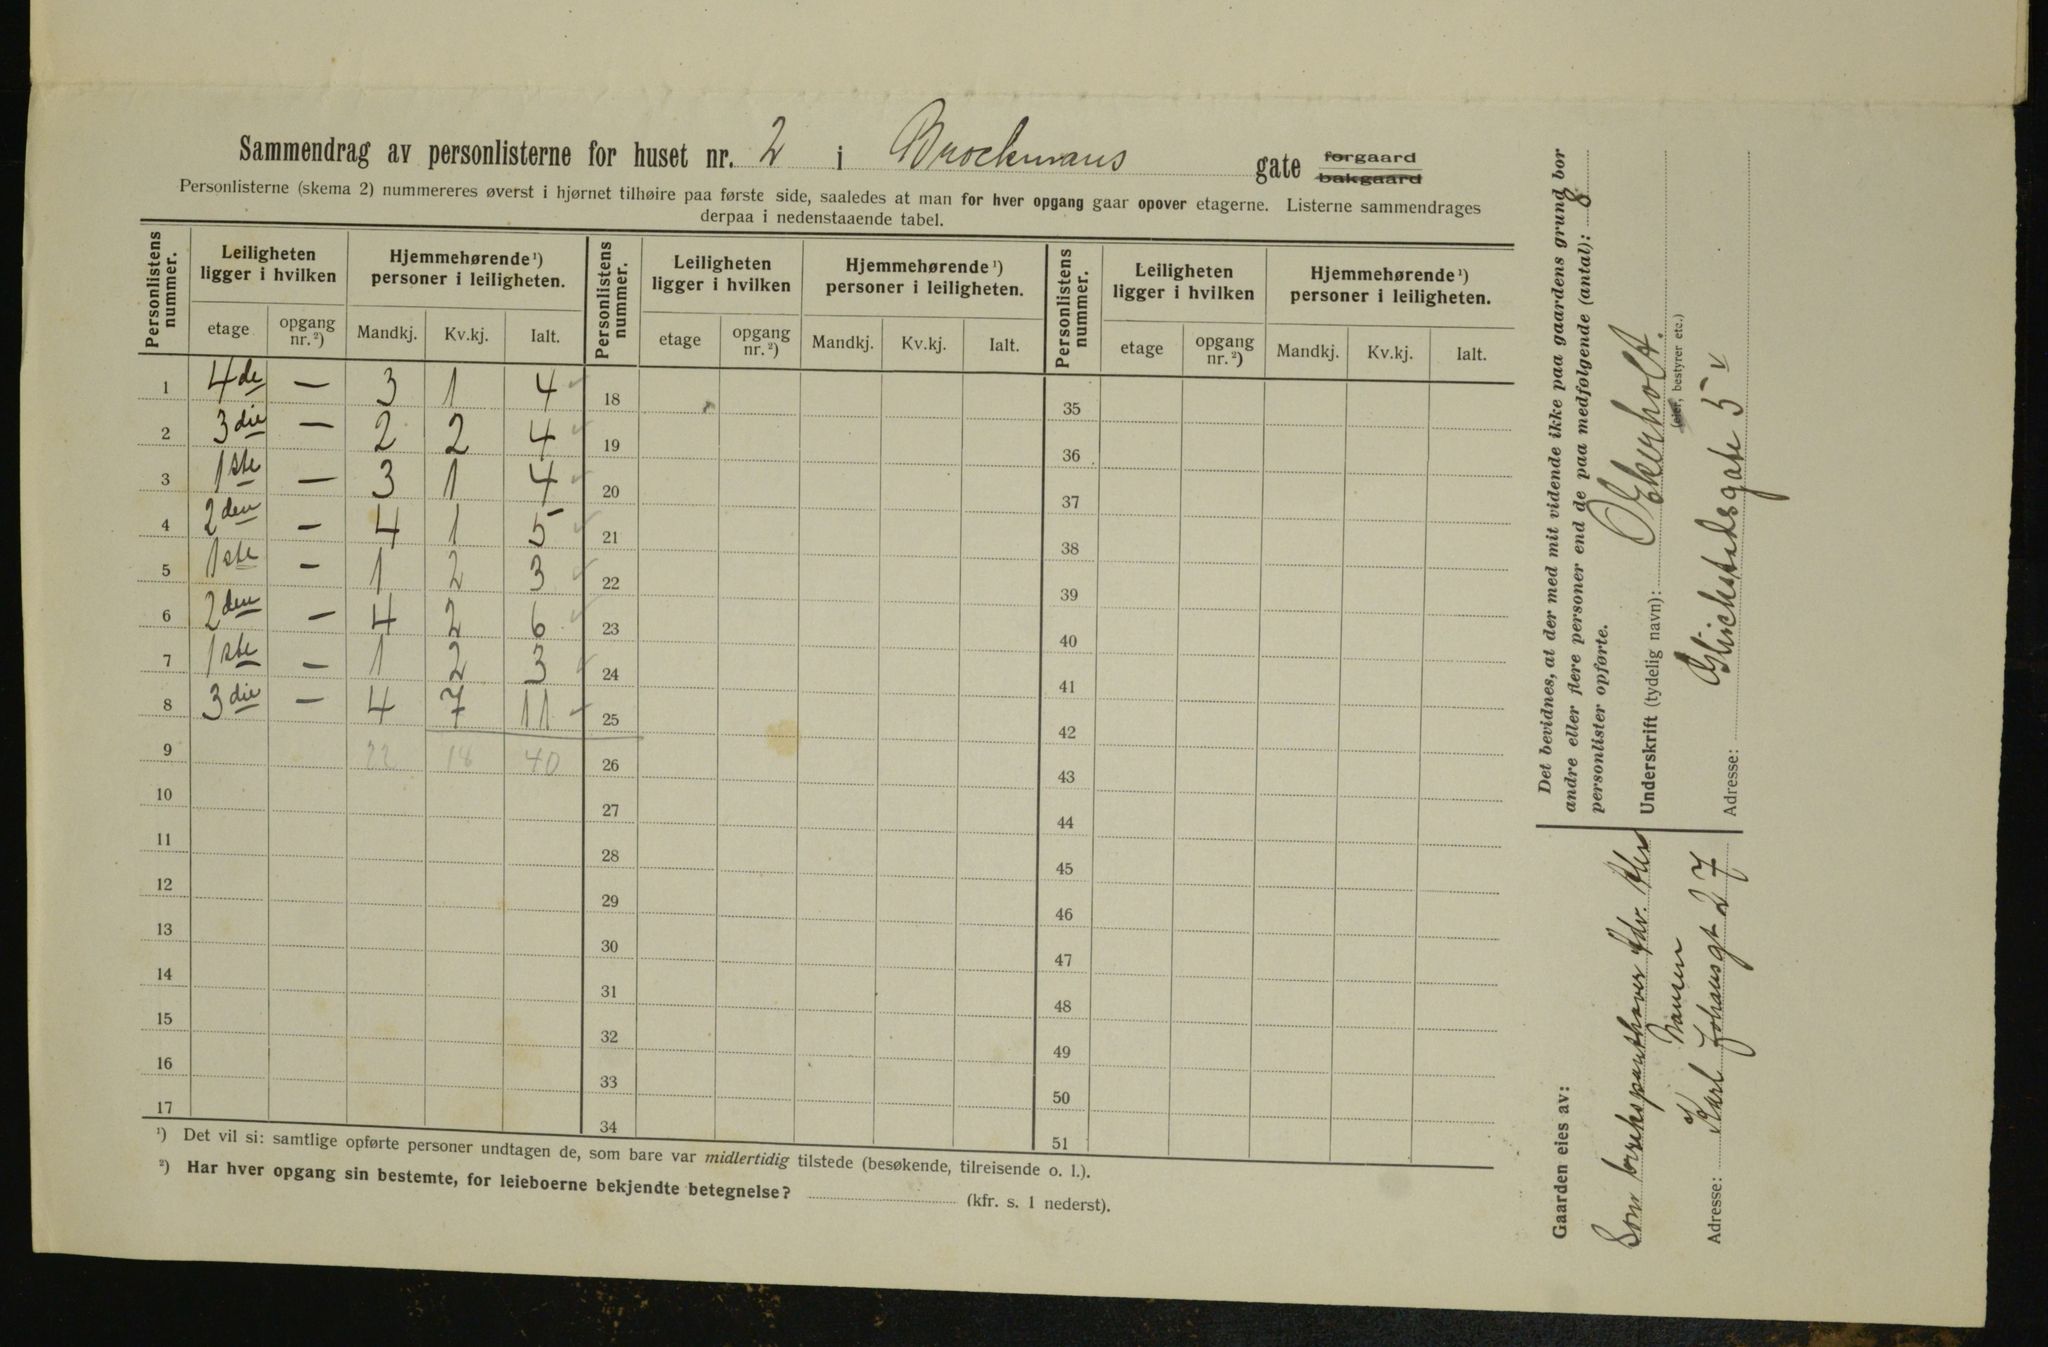 Sammendrag av personlisterne for huset nr. 2 i Brockmans gate forgaard
bakgaard
Personlisterne (skema 2) nummereres øverst i hjørnet tilhøire paa første side, saaledes at man for hver opgang gaar opover etagerne. Listerne sammendrages
derpaa i nedenstaaende tabel.
Personlistens nummer. Leiligheten ligger i hvilken Hjemmehørende ¹) personer i leiligheten. Personlistens nummer. Leiligheten ligger i hvilken Hjemmehørende ¹) personer i leiligheten. Personlistens nummer. Leiligheten ligger i hvilken Hjemmehørende ¹) personer i leiligheten.
etage opgang nr. ²) Mandkj. Kv.kj. Ialt. etage opgang nr. ²) Mandkj. Kv.kj. Ialt. etage opgang nr. ²) Mandkj. Kv.kj. Ialt.
1 4de — 3 1 4 18 35
2 3die — 2 2 4 19 36
3 1ste — 3 1 4 20 37
4 2den — 4 1 5 21 38
5 1ste — 1 2 3 22 39
6 2den — 4 2 6 23 40
7 1ste — 1 2 3 24 41
8 3die — 4 7 11 25 42
9 22 18 40 26 43
10 27 44
11 28 45
12 29 46
13 30 47
14 31 48
15 32 49
16 33 50
17 34 51
¹) Det vil si: samtlige opførte personer undtagen de, som bare var midlertidig tilstede (besøkende, tilreisende o. l.).
²) Har hver opgang sin bestemte, for leieboerne bekjendte betegnelse? (kfr. s. 1 nederst).
Det bevidnes, at der med mit vidende ikke paa gaardens grund bor
andre eller flere personer end de paa medfølgende (antal): 8
personlister opførte.
Underskrift (tydelig navn): O Ekerholt.
(eier, bestyrer etc.)
Adresse: Glückstadsgate 5 v
Gaarden eies av:
Som brukspanthaver Adv.
Hansen
Adresse: Karl Johansgt 27